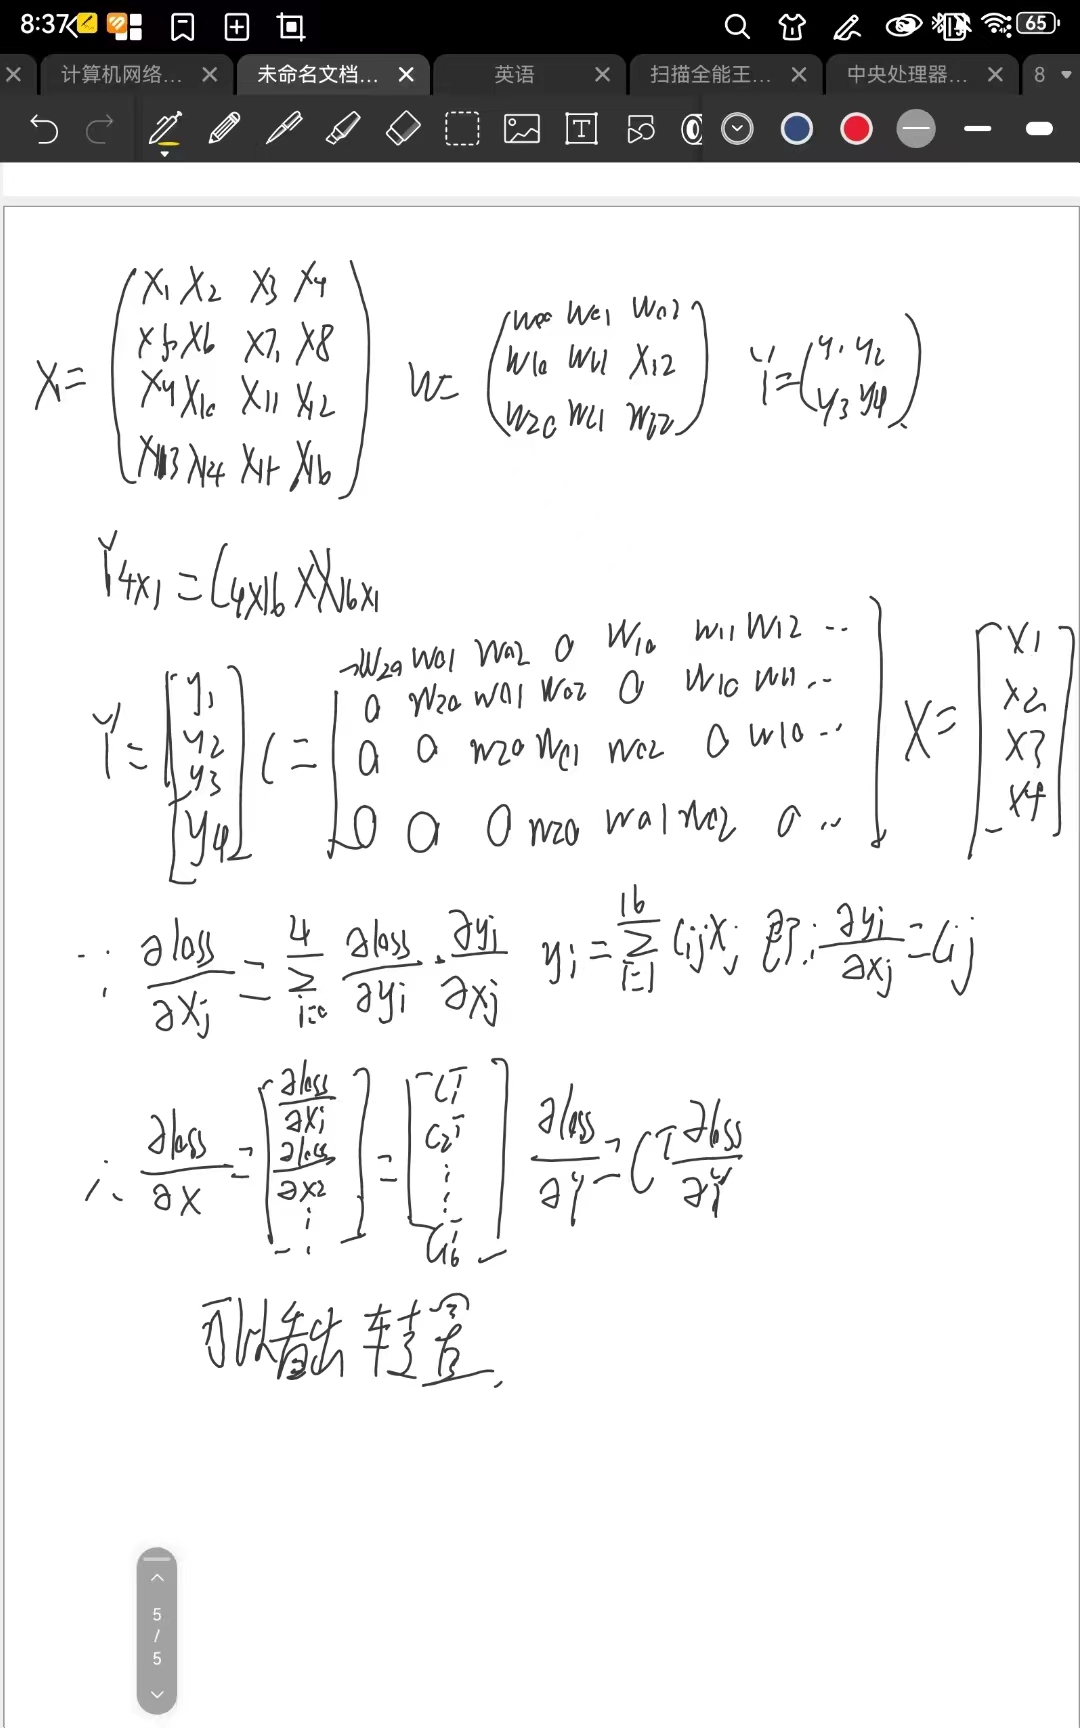 8:37 65
计算机网络... 未命名文档... 英语 扫描全能王... 中央处理器... 8
X= x1 x2 x3 x4
x5 x6 x7 x8
x9 x10 x11 x12
x13 x14 x15 x16
W= w00 w01 w02
w10 w11 x12
w20 w21 w22
Y= y1 y2
y3 y4
Y4x1 = C4x16 x X16x1
Y= y1
y2
y3
y4
C= w20 w01 w02 0 w10 w11 w12 ..
0 w20 w01 w02 0 w10 w11 ..
0 0 w20 w01 w02 0 w10 ..
0 0 0 w20 w01 w02 0 ..
X= x1
x2
x3
x4
∵ ∂loss/∂xj = 4 Σ i=0 ∂loss/∂yi · ∂yi/∂xj yi = 16 Σ i=1 Cij xj 即: ∂yi/∂xj = Cij
∴ ∂loss/∂X = [∂loss/∂x1 ∂loss/∂x2 ⋮] = [C1T C2T ⋮ C16T] ∂loss/∂Y = CT ∂loss/∂Y
可以看出 转置.
5
/
5